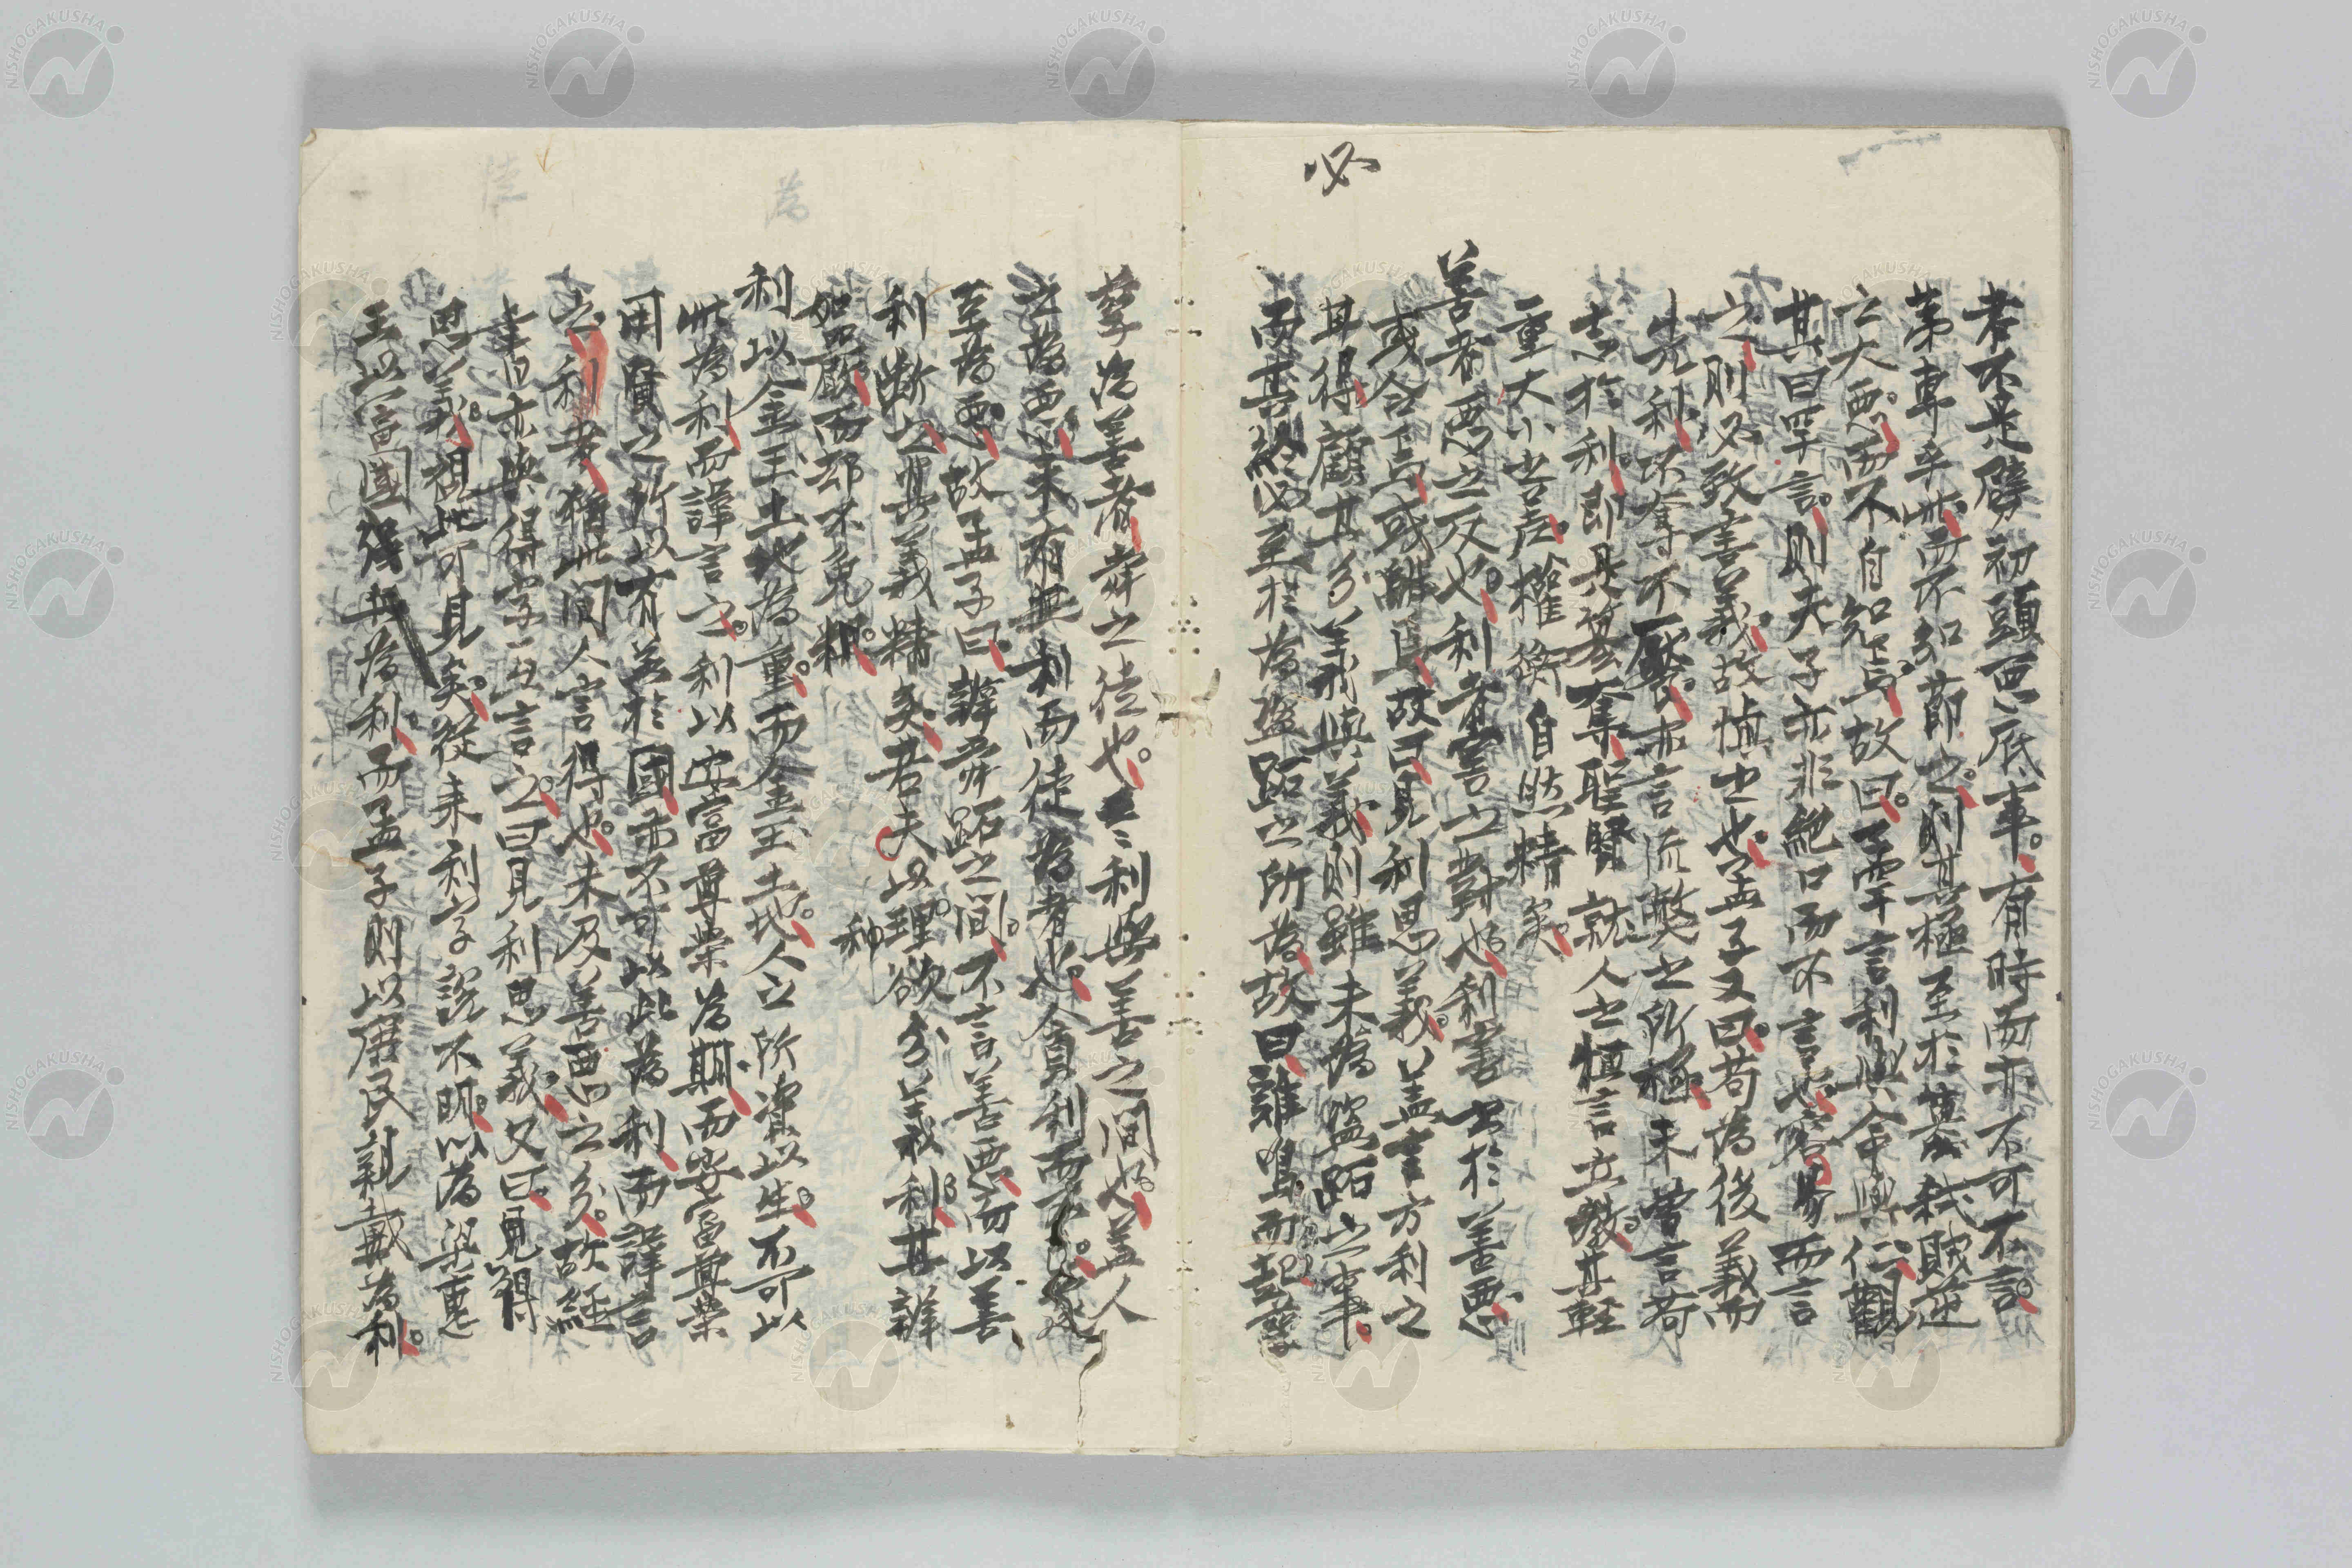 必
者不是劈初頭惡底事。有時而亦不可不言。
第專乎此而不知節之。則其極至於簒弑賊逆
之大惡。而不自知焉。故曰。罕言利與命與仁。觀
其曰罕言。則夫子亦非絶口而不言也。容易而言
之。則必致害義。故慎之也。孟子又曰。苟為後義而
先利。不奪不饜。亦言流弊之所極。未嘗言苟
志於利。即是簒奪。聖賢就人之恒言立教。其輕
重大小害處。權衡自然精矣。
善者惡之反也。利者害之對也。利害公於善惡。
或合焉或離焉。故曰見利思義。蓋言方利之
其得。顧其於義與義。則雖未為盜跖之事。
而其終必至於為盜跖之所為。故曰。雞鳴而起孳
孳為善者。舜之徒也。利與善之間也。蓋人
之為惡。未有無利而徒為者也。貪利而不
至為惡。故孟子曰。辨舜跖之間。不言善惡。而以善
利斷之。其義精矣。若夫以理欲分義利。其辨
如嚴而却不免粗。
利以金玉土地為重。而金玉土地。人之所資以生。不可以
此為利而諱言之。利以安富尊榮為期。而安富尊榮
用賢之所以有益於國。亦不可以此為利而諱言
之。利者。猶此間人言得也。未及善惡之分。故經
書曰亦與得字互言之。曰見利思義。又曰。見得
思義。視此可見矣。從来利字說不明。以為梁惠
王以富國強兵為利。而孟子則以庶民親戴為利。